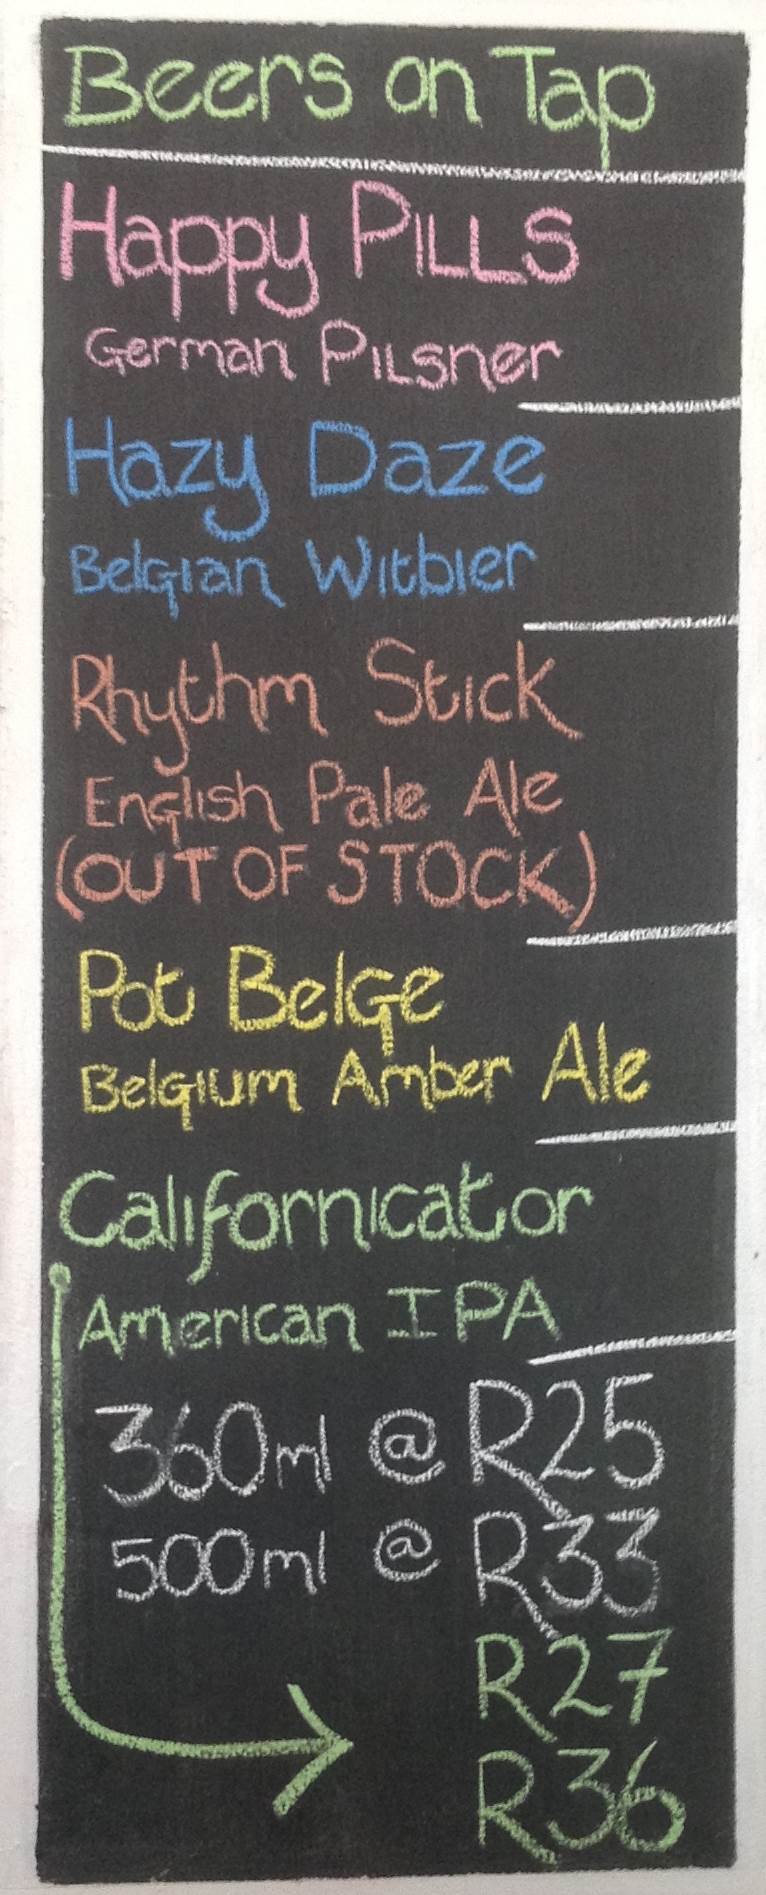 Beers on Tap
Happy PILLS
German Pilsner
Hazy Daze
Belgian Witbier
Rhythm Stick
English Pale Ale
(OUT OF STOCK)
Pot Belge
Belgium Amber Ale
Californicator
American IPA
360ml @ R25
500ml @ R33
R27
R36